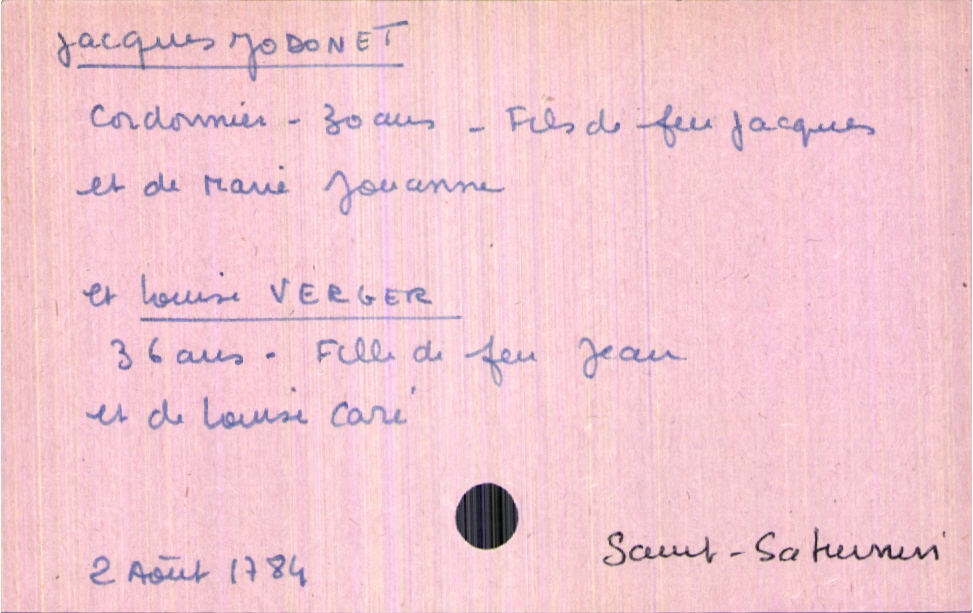 Jacques JODONET
Cordonnier - 30 ans - Fils de feu Jacques
et de Marie Jouanne
et Louise VERGER
36 ans - Fille de feu Jean
et de Louise Caré
2 Août 1784
Saint-Saturnin